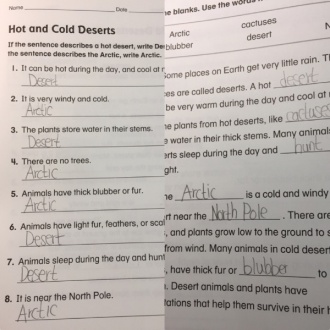 Name Date
Hot and Cold Deserts
If the sentence describes a hot desert, write De
the sentence describes the Arctic, write Arctic.
1. It can be hot during the day, and cool at n
Desert
2. It is very windy and cold.
Arctic
3. The plants store water in their stems.
Desert
4. There are no trees.
Arctic
5. Animals have thick blubber or fur.
Arctic
6. Animals have light fur, feathers, or scal
Desert
7. Animals sleep during the day and hunt
Desert
8. It is near the North Pole.
Arctic
he blanks. Use the words
Arctic cactuses N
blubber desert
Some places on Earth get very little rain. Th
es are called deserts. A hot desert
be very warm during the day and cool at
e plants from hot deserts, like cactuses
e water in their thick stems. Many animal
rts sleep during the day and hunt
ght.
he Arctic is a cold and windy
rt near the North Pole. There are
, and plants grow low to the ground to s
from wind. Many animals in cold desert
, have thick fur or blubber to
. Desert animals and plants have
tations that help them survive in their h